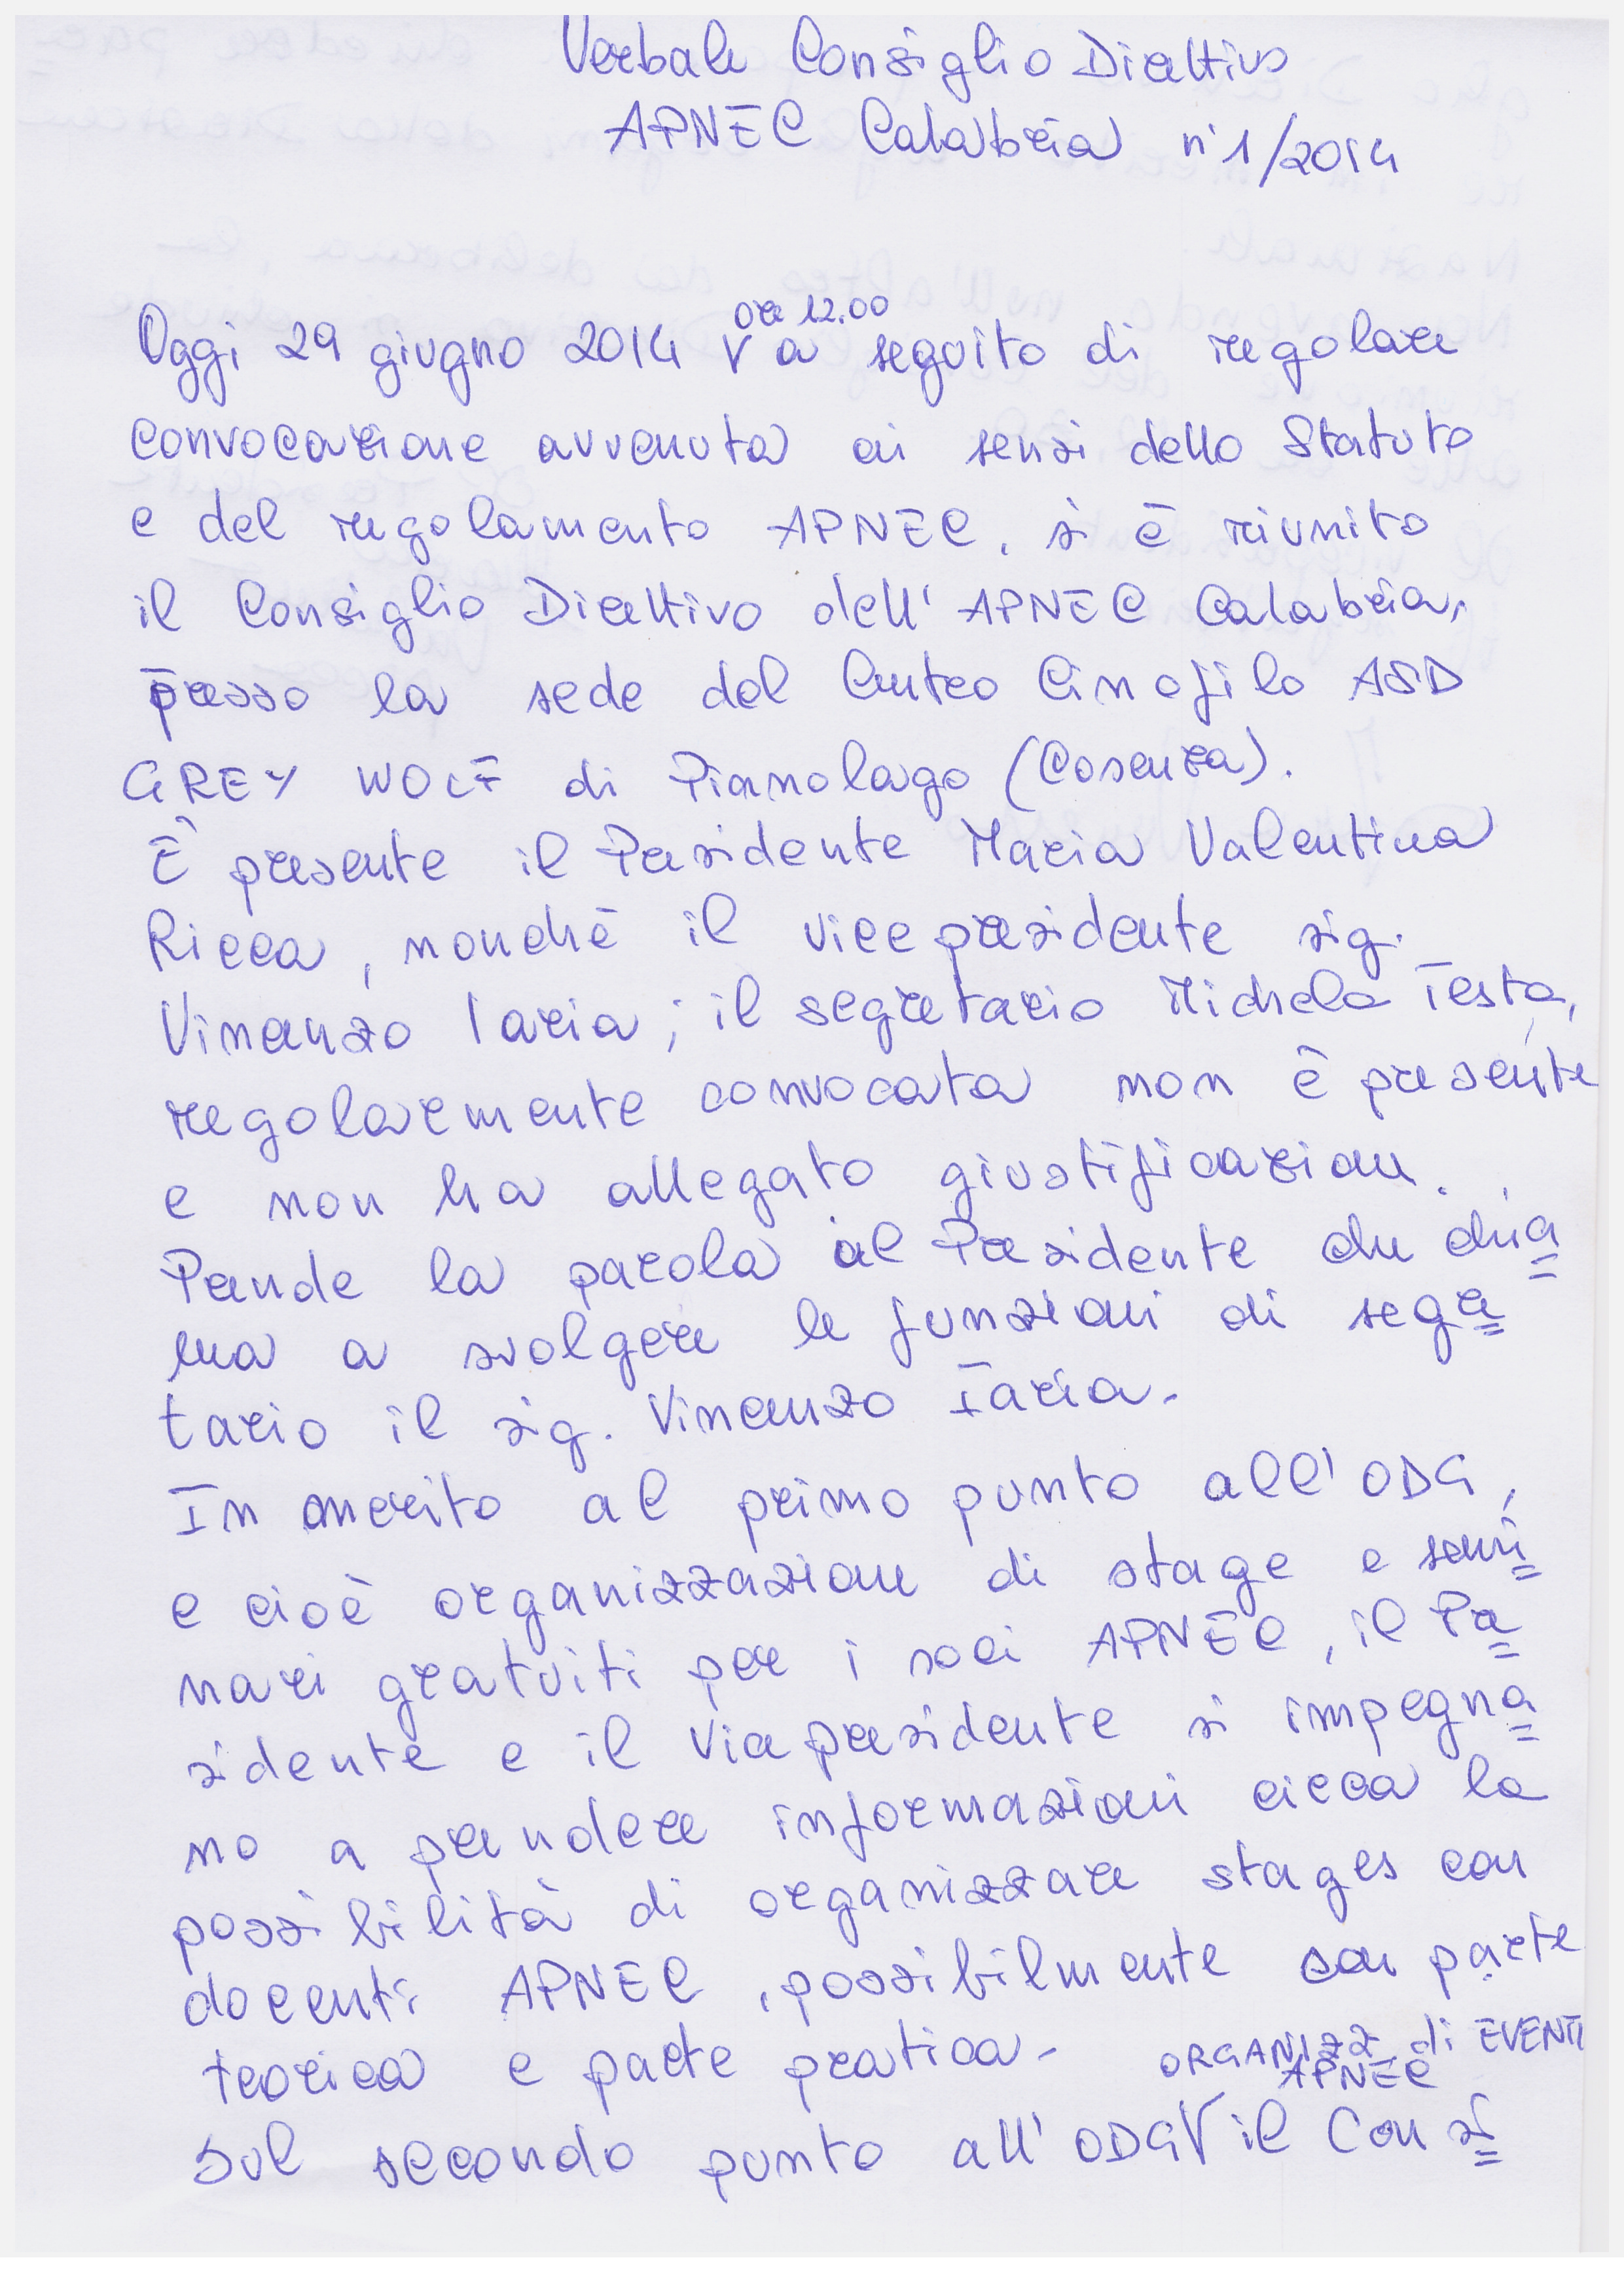 Verbale Consiglio Direttivo
APNEC Calabria n°1/2014
ore 12.00
Oggi 29 giugno 2014 V a seguito di regolare
convocazione avvenuta ai sensi dello Statuto
e del regolamento APNEC, si è riunito
il Consiglio Direttivo dell'APNEC Calabria,
presso la sede del Centro Cinofilo ASD
GREY WOLF di Pianolago (Cosenza).
È presente il Presidente Maria Valentina
Ricca, nonché il vicepresidente sig.
Vincenzo Iaria; il segretario Michela Testa,
regolarmente convocata non è presente
e non ha allegato giustificazione.
Prende la parola il Presidente che chia=
ma a svolgere le funzioni di segre=
tario il sig. Vincenzo Iaria.
In merito al primo punto all'ODG,
e cioè organizzazione di stage e semi=
nari gratuiti per i soci APNEC, il Pre=
sidente e il Vicepresidente si impegna=
no a prendere informazioni circa la
possibilità di organizzare stages con
docenti APNEC, possibilmente con parte
teorica e parte pratica.
ORGANIZZ. di EVENTI
APNEC
Sul secondo punto all'ODG V il Consi=